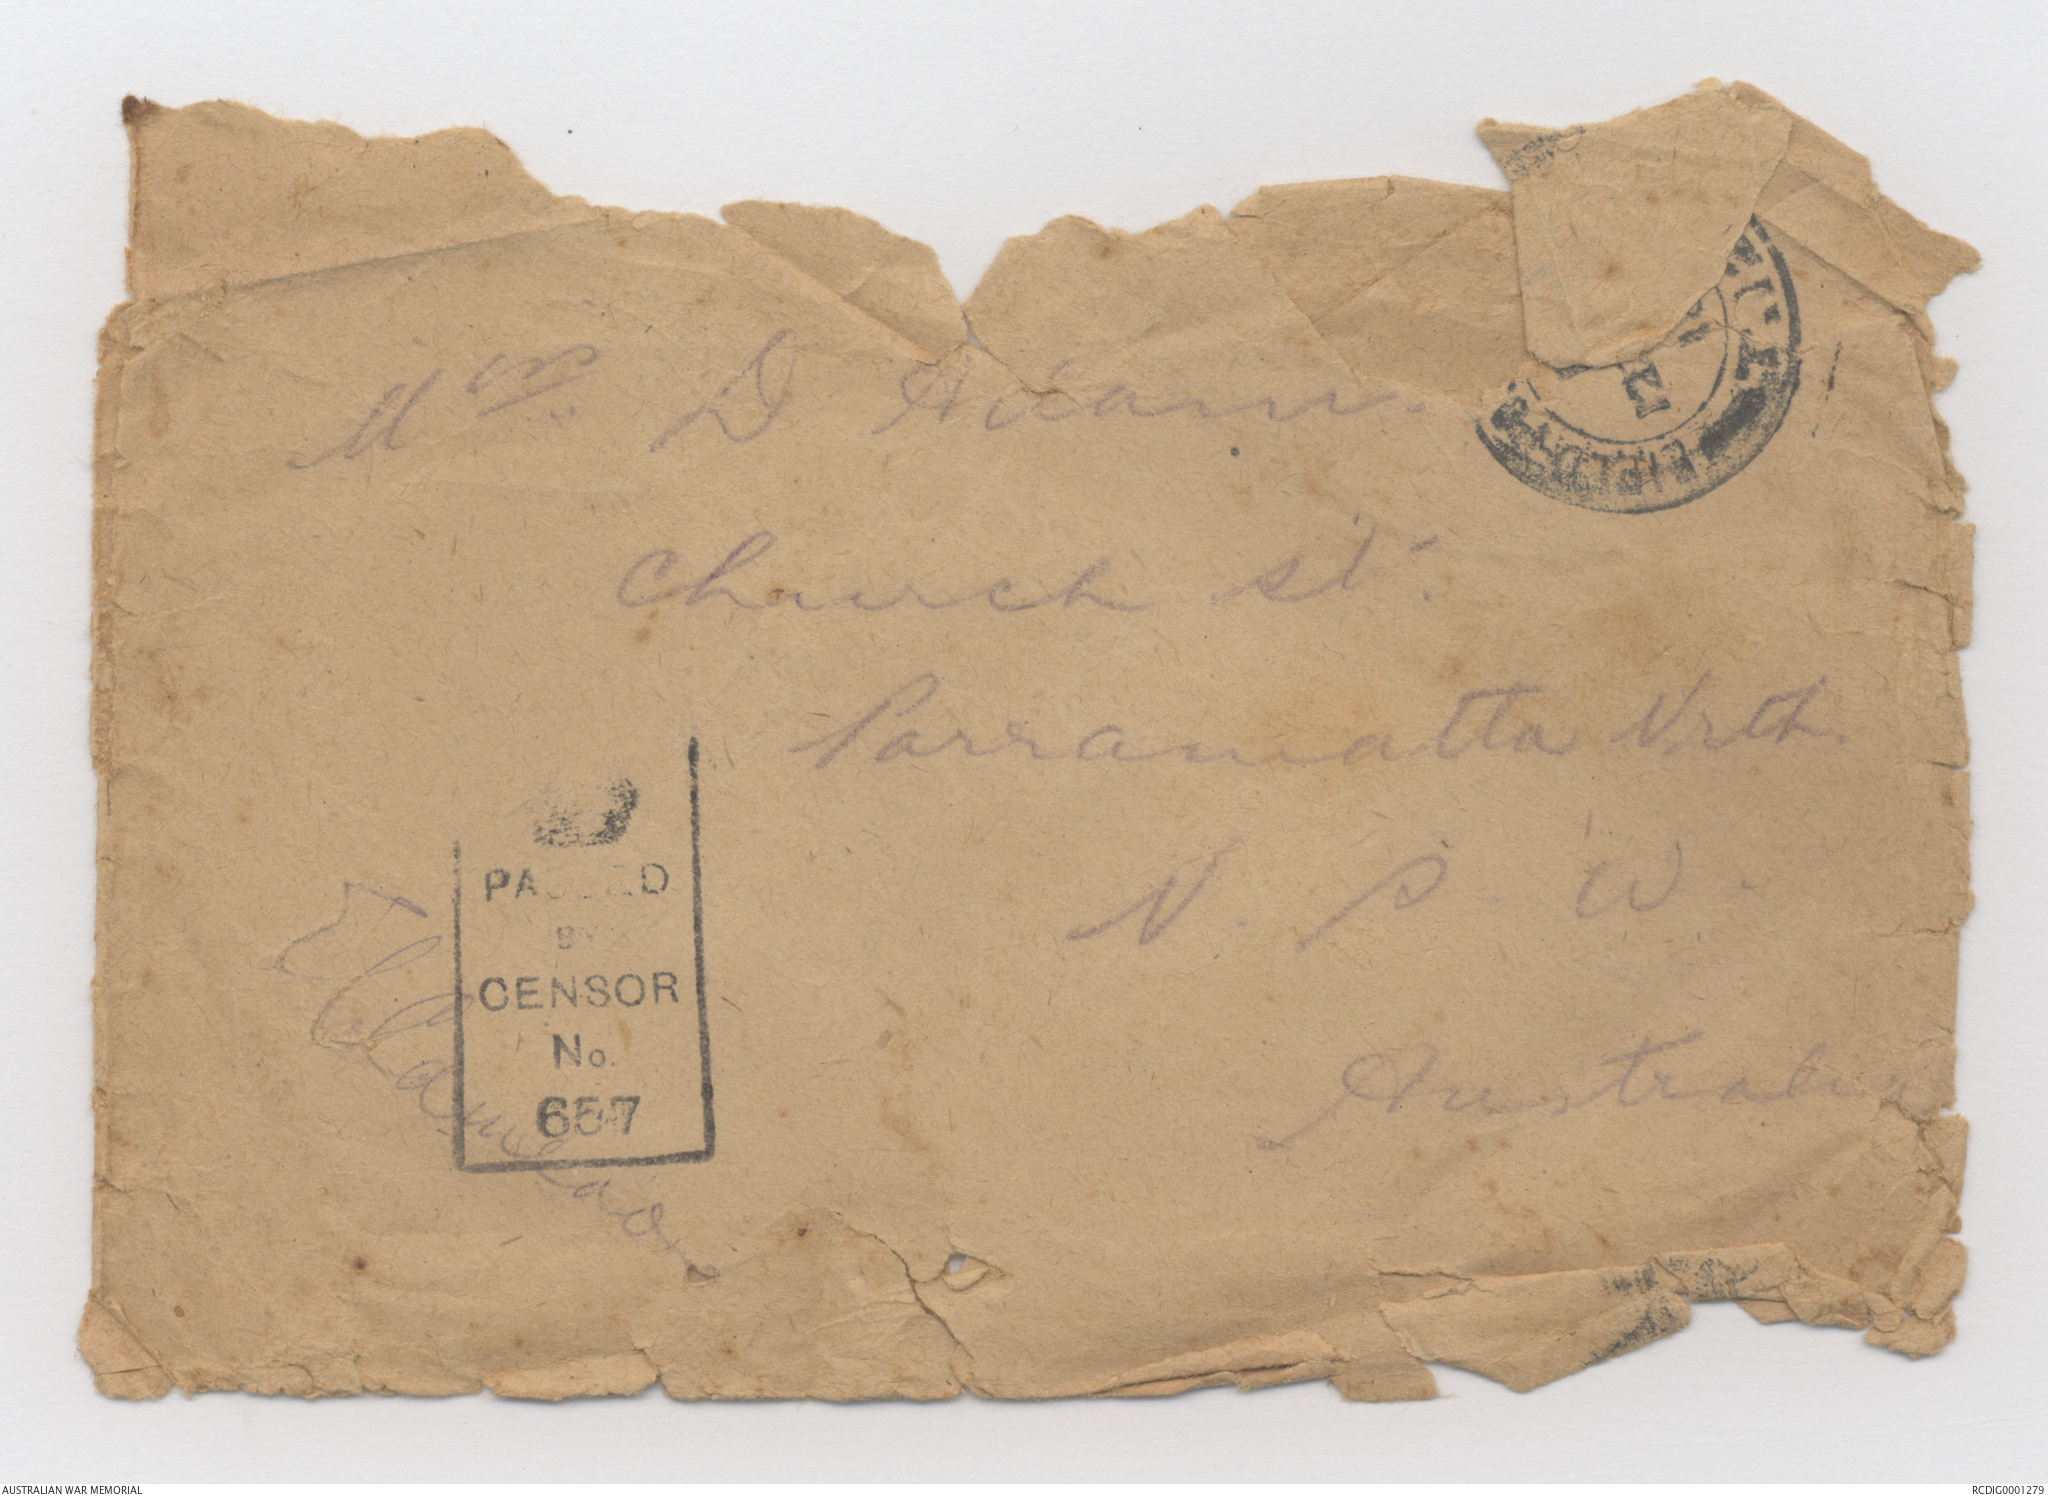 Mrs D Adam.
Church st.
Parramatta Nrth.
N. S. W.
Australia
PASSED
BY
CENSOR
No.
657
FIELD
AUSTRALIAN WAR MEMORIAL
RCDIG0001279